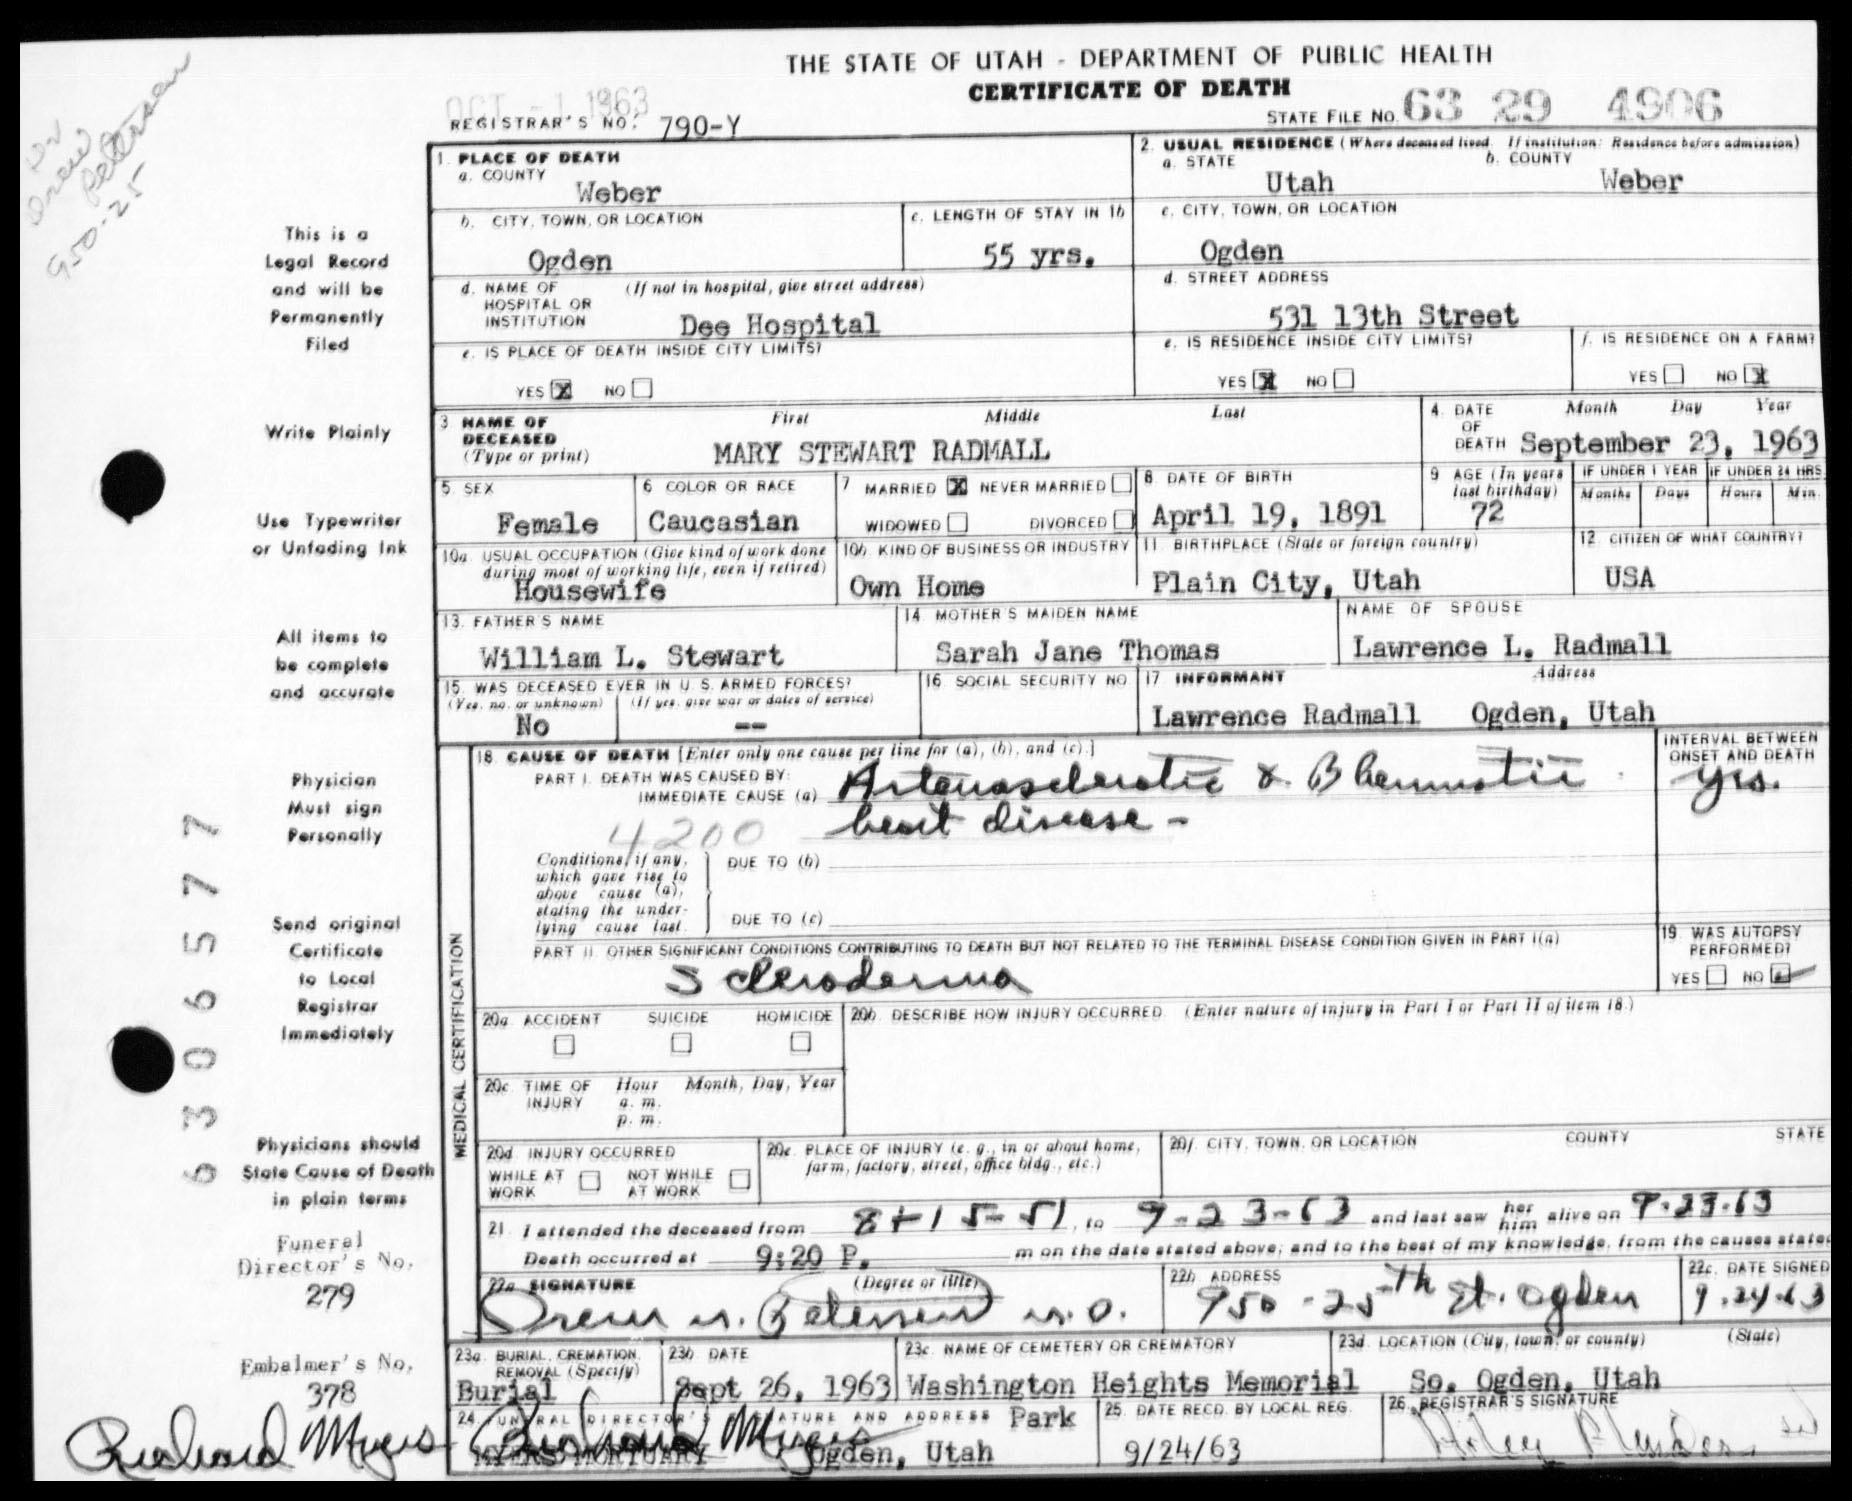 THE STATE OF UTAH - DEPARTMENT OF PUBLIC HEALTH
CERTIFICATE OF DEATH
OCT - 1 1963
REGISTRAR'S NO. 790-Y
STATE FILE NO. 63 29 4906
Dr
Drew
Petersen
950-25
This is a
Legal Record
and will be
Permanently
Filed
Write Plainly
Use Typewriter
or Unfading Ink
All items to
be complete
and accurate
Physician
Must sign
Personally
Send original
Certificate
to Local
Registrar
Immediately
Physicians should
State Cause of Death
in plain terms
Funeral
Director's No.
279
Embalmer's No.
378
Richard Myers
6306577
1. PLACE OF DEATH
a. COUNTY
Weber
2. USUAL RESIDENCE (Where deceased lived. If institution: Residence before admission)
a. STATE b. COUNTY
Utah Weber
b. CITY, TOWN, OR LOCATION
Ogden
c. LENGTH OF STAY IN 1b
55 yrs.
c. CITY, TOWN, OR LOCATION
Ogden
d. NAME OF (If not in hospital, give street address)
HOSPITAL OR
INSTITUTION Dee Hospital
d. STREET ADDRESS
531 13th Street
e. IS PLACE OF DEATH INSIDE CITY LIMITS?
YES X NO
e. IS RESIDENCE INSIDE CITY LIMITS?
YES X NO
f. IS RESIDENCE ON A FARM?
YES NO X
3 NAME OF First Middle Last
DECEASED
(Type or print) MARY STEWART RADMALL
4. DATE Month Day Year
OF
DEATH September 23, 1963
5. SEX
Female
6 COLOR OR RACE
Caucasian
7 MARRIED X NEVER MARRIED
WIDOWED DIVORCED
8. DATE OF BIRTH
April 19, 1891
9 AGE (In years
last birthday)
72
IF UNDER 1 YEAR IF UNDER 24 HRS.
Months Days Hours Min.
10a. USUAL OCCUPATION (Give kind of work done
during most of working life, even if retired)
Housewife
10b. KIND OF BUSINESS OR INDUSTRY
Own Home
11. BIRTHPLACE (State or foreign country)
Plain City, Utah
12. CITIZEN OF WHAT COUNTRY?
USA
13. FATHER'S NAME
William L. Stewart
14 MOTHER'S MAIDEN NAME
Sarah Jane Thomas
NAME OF SPOUSE
Lawrence L. Radmall
15. WAS DECEASED EVER IN U. S. ARMED FORCES?
(Yes, no, or unknown) (If yes, give war or dates of service)
No --
16. SOCIAL SECURITY NO.
17. INFORMANT Address
Lawrence Radmall Ogden, Utah
MEDICAL CERTIFICATION
18. CAUSE OF DEATH [Enter only one cause per line for (a), (b), and (c).]
INTERVAL BETWEEN
ONSET AND DEATH
PART I. DEATH WAS CAUSED BY:
IMMEDIATE CAUSE (a) Arteriosclerotic & Rheumatic yrs.
4200 heart disease -
Conditions, if any,
which gave rise to
above cause (a),
stating the under-
lying cause last.
DUE TO (b)
DUE TO (c)
PART II. OTHER SIGNIFICANT CONDITIONS CONTRIBUTING TO DEATH BUT NOT RELATED TO THE TERMINAL DISEASE CONDITION GIVEN IN PART I(a)
Scleroderma
19. WAS AUTOPSY
PERFORMED?
YES NO
20a. ACCIDENT SUICIDE HOMICIDE
20b. DESCRIBE HOW INJURY OCCURRED. (Enter nature of injury in Part I or Part II of item 18.)
20c. TIME OF Hour Month, Day, Year
INJURY a. m.
p. m.
20d. INJURY OCCURRED
WHILE AT WORK NOT WHILE AT WORK
20e. PLACE OF INJURY (e. g., in or about home,
farm, factory, street, office bldg., etc.)
20f. CITY, TOWN, OR LOCATION COUNTY STATE
21. I attended the deceased from 8-15-51, to 9-23-63 and last saw her him alive on 9-23-63
Death occurred at 9:20 P. m on the date stated above; and to the best of my knowledge, from the causes stated
22a. SIGNATURE (Degree or title)
Drew M. Petersen M.D.
22b. ADDRESS
950 - 25th St. Ogden
22c. DATE SIGNED
9.24.63
23a. BURIAL, CREMATION,
REMOVAL (Specify)
Burial
23b. DATE
Sept 26, 1963
23c. NAME OF CEMETERY OR CREMATORY
Washington Heights Memorial
Park
23d. LOCATION (City, town, or county) (State)
So. Ogden, Utah
24. FUNERAL DIRECTOR'S SIGNATURE AND ADDRESS
Richard Myers
MYERS MORTUARY Ogden, Utah
25. DATE RECD. BY LOCAL REG.
9/24/63
26. REGISTRAR'S SIGNATURE